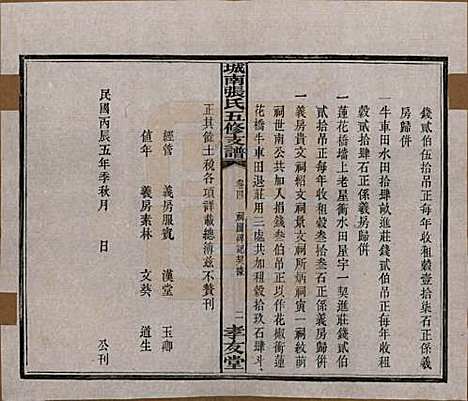 錢貳伯伍拾吊正每年收租穀壹拾柒石正係義
房歸併
一牛車田水田拾肆畝進莊錢貳伯吊正每年收租
穀貳拾肆石正係義房歸併
一蓮花橋墻上老屋衝水田屋宇一契進莊錢貳伯
貳拾吊正每年收租穀叁拾叁石正係義房歸併
一義房貴文祠紹文祠景文祠所祠寅一祠紋萌
祠世南公共加入捐錢叁伯吊正以作花椒衝蓮
花橋牛車田退莊用三處共加租穀拾玖石肆斗
正其餘土稅各項詳載總簿茲不贅刊
經管 義房服賓 漢堂 玉卿
值年 義房素林 文葵 道生
民國丙辰五年季秋月 日 公刊
城南張氏五修支譜
卷四 祠圖碑記契據 一
孝友堂